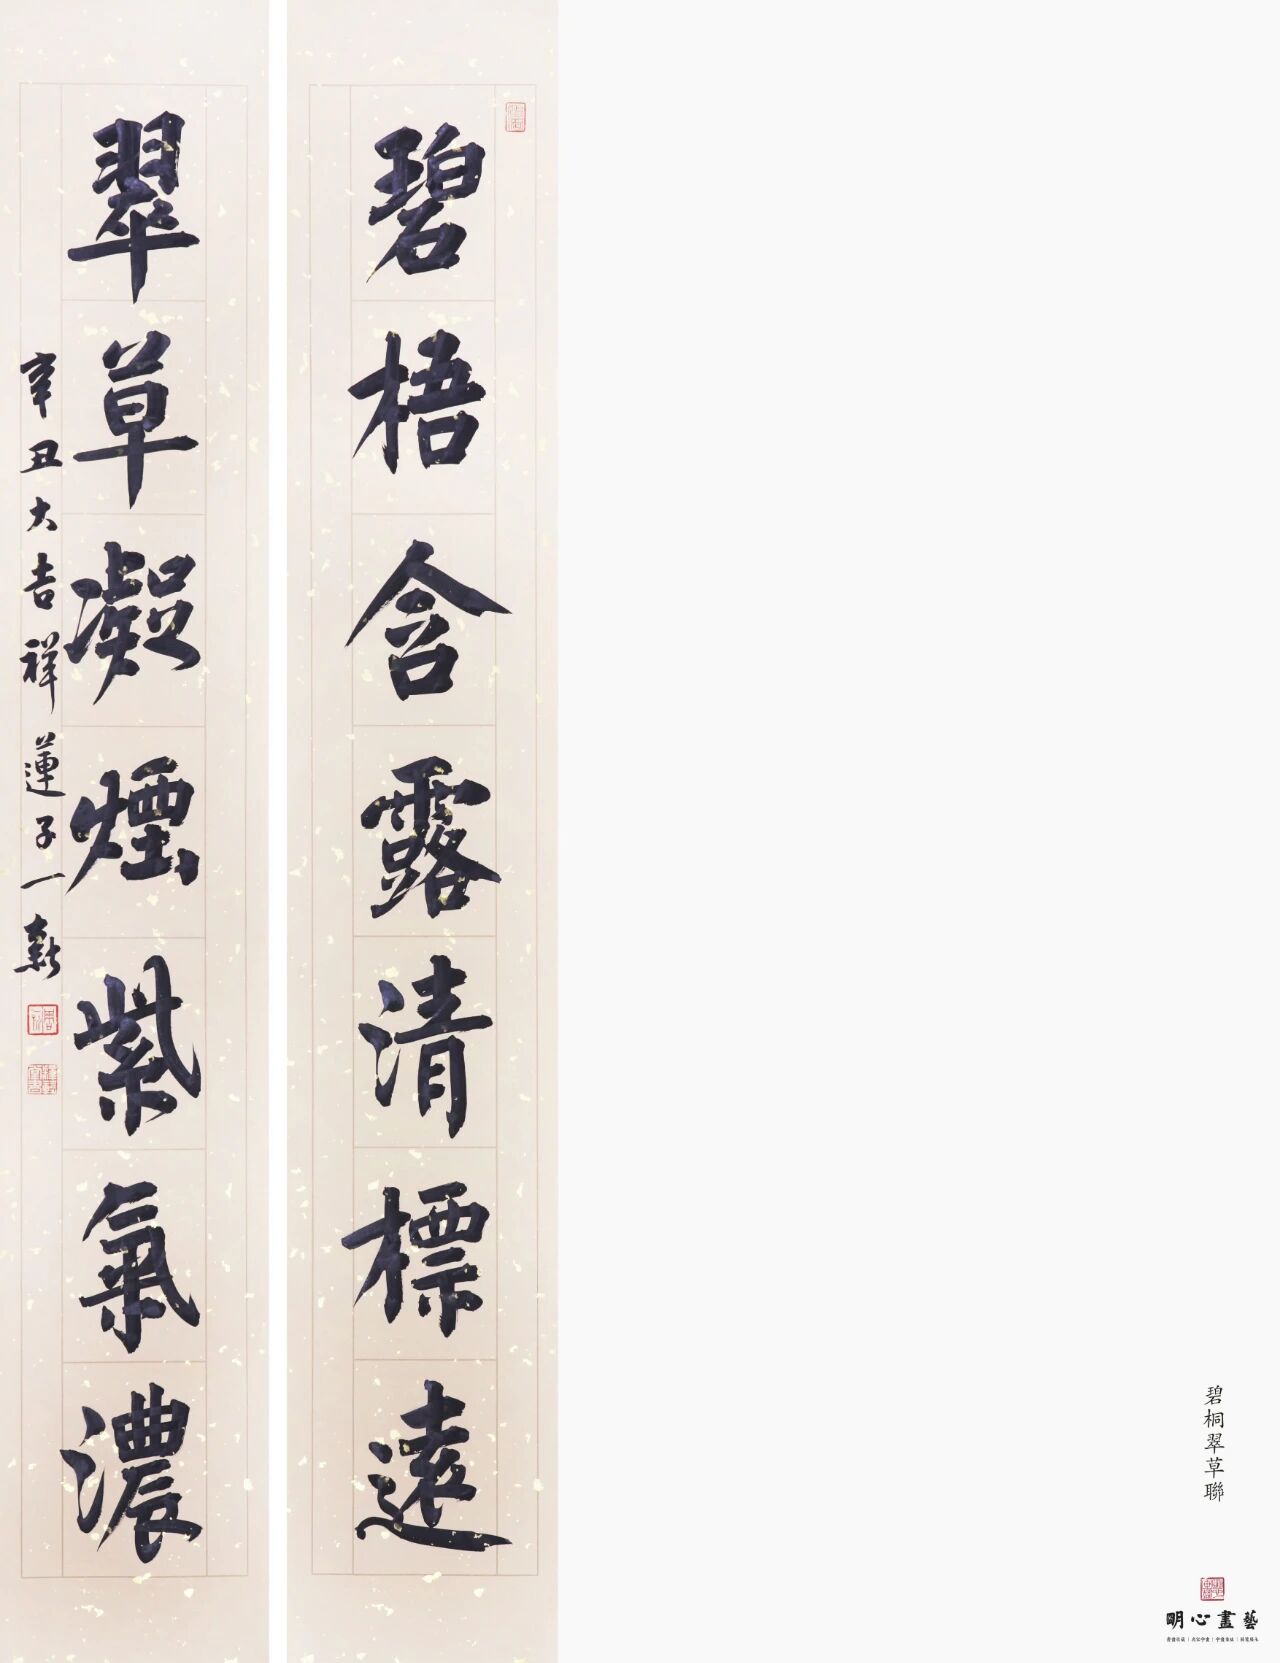 碧梧含露清標遠
翠草凝煙紫氣濃
辛丑大吉祥蓮子一新
碧桐翠草聯
明心畫藝